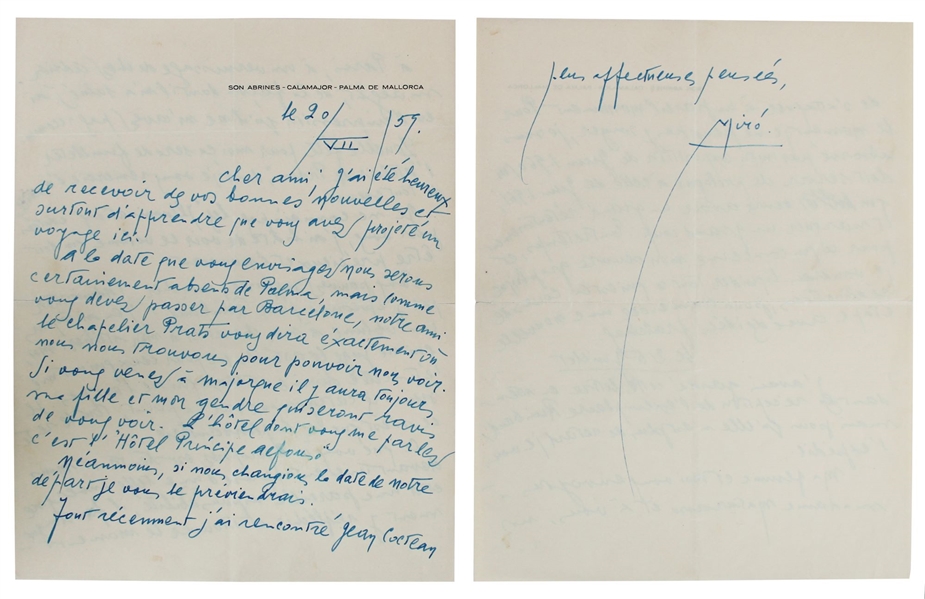 SON ABRINES - CALAMAJOR - PALMA DE MALLORCA
le 20/VII/59.
cher ami, j'ai été heureux
de recevoir de vos bonnes nouvelles et
surtout d'apprendre que vous avez projeté un
voyage ici.
A la date que vous envisagez nous serons
certainement absents de Palma, mais comme
vous devez passer par Barcelone, notre ami
le chapelier Prats vous dira éxactement où
nous nous trouvons pour pouvoir nous voir.
Si vous venez à majorque il y aura toujours
ma fille et mon gendre qui seront ravis
de vous voir. L'hôtel dont vous me parlez
c'est l'"Hôtel Príncipe alfonso"
Néanmoins, si nous changions la date de notre
départ je vous le préviendrais.
Tout récemment j'ai rencontré Jean Cocteau
pensées,
Miró.